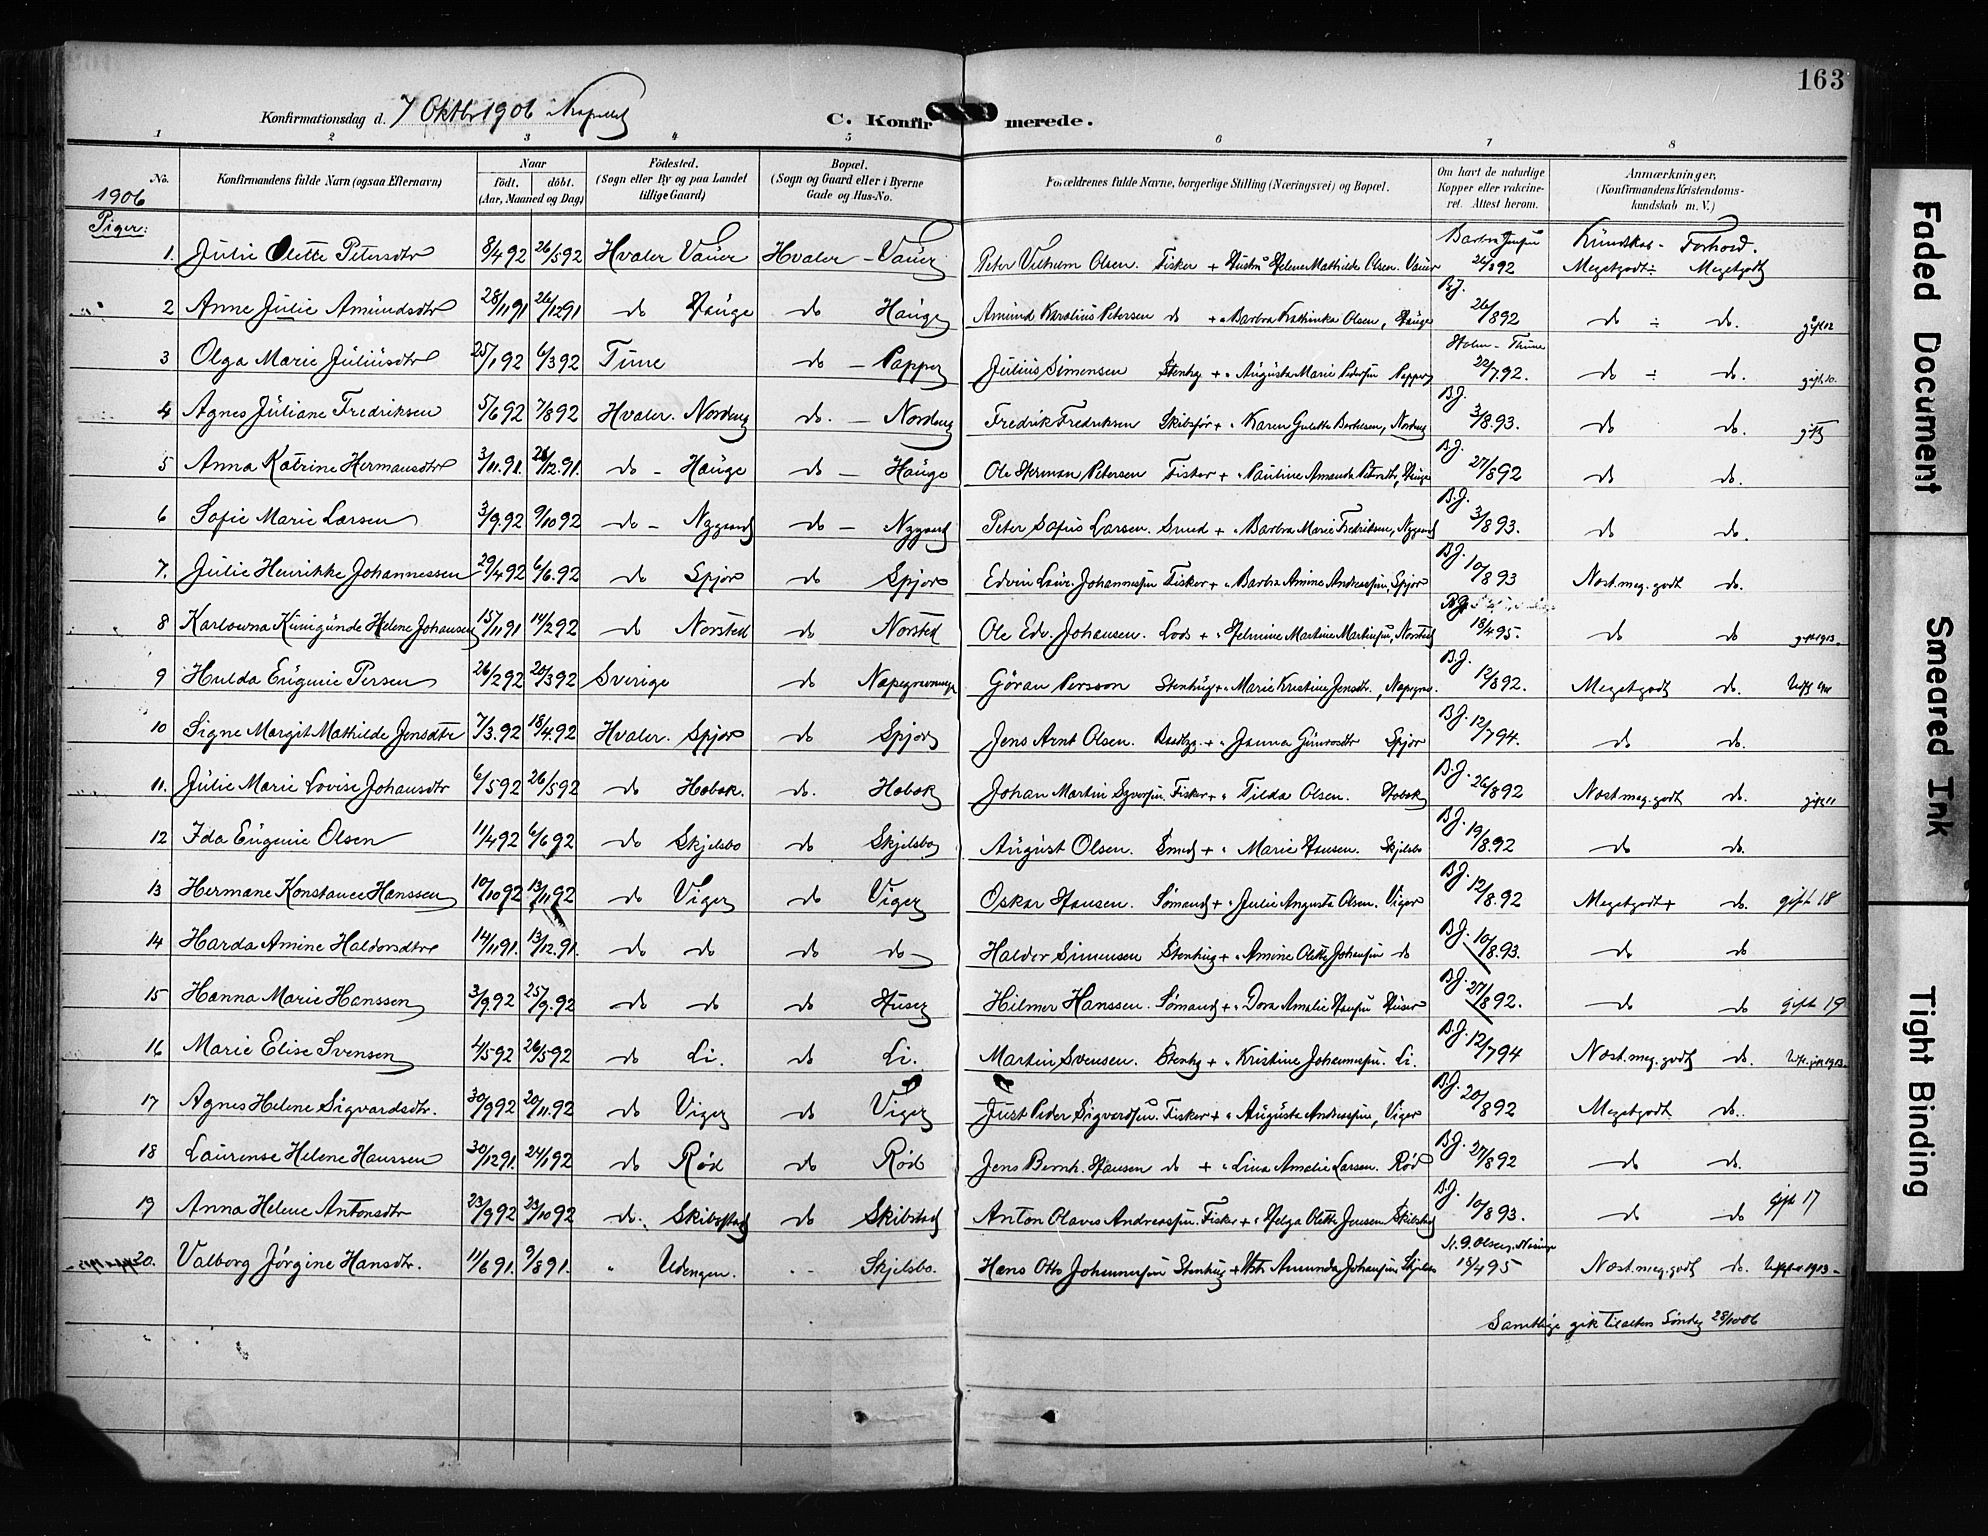 163
Konfirmationsdag d. 7 Oktbr 1906
C. Konfirmerede.
1 2 3 4 5 6 7 8
No. Konfirmandens fulde Navn (ogsaa Efternavn) Naar født. døbt. (Aar, Maaned og Dag) Fødested. (Sogn eller By og paa Landet tillige Gaard) Bopæl. (Sogn og Gaard eller i Byerne Gade og Hus-No. Forældrenes fulde Navne, borgerlige Stilling (Næringsvei) og Bopæl. Om havt de naturlige Kopper eller vakcineret. Attest herom. Anmærkninger, (Konfirmandens Kristendomskundskab m. V.)
1906
Piger: Kundskab - Forhold.
1. Julie Olette Petersdtr 8/4 92 26/5 92 Hvaler Vauer Hvaler - Vauer Peter Vilhelm Olsen. Fisker + Hustru Helene Mathilde Olsen. Vauer Barbra Jensen 26/8 92 Megetgodt ÷ Megetgodt
2 Anne Julie Amundsdtr 28/11 91 26/12 91 do Hauge do Hauge Amund Karolius Petersen do + " Barbra Kathinka Olsen, Hauge B.J. 26/8 92 do ÷ do. gift 12
3 Olga Marie Juliusdtr 25/1 92 6/3 92 Tune do - Papper Julius Simensen Stenhg + " Augusta Marie Pedersen Papper Holm - Thune 22/7 92. do ÷ do. gift 10.
4 Agnes Juliane Fredriksen 5/6 92 7/8 92 Hvaler. Nordeng do. - Nordeng Fredrik Fredriksen Skibsfør + " Karen Gulette Berthelsen, Nordeng B.J. 3/8 93. do do. gift
5 Anna Katrine Hermansdtr 3/11. 91. 26/12. 91. do - Hauge do - Hauge Ole Herman Petersen Fisker + " Pauline Amanda Petersdtr, Hauge B.J. 27/8 92 do do.
6 Sofie Marie Larsen 3/9. 92 9/10 92 do - Nygaard do - Nygaard Peter Sofus Larsen. Smed + " Barbra Marie Fredriksen, Nygaard B.J. 3/8 93. do do.
7. Julie Henrikke Johannessen 29/4 92 6/6. 92 do Spjær do Spjær Edvin Laur. Johannessen Fisker + " Barbra Amine Andreassen, Spjær B.J. 10/8 93 Næst. meg. godt do.
8 Karlowna Kunigunde Helene Johansen 15/11 91 14/2 92 do Norsted do Norsted Ole Edv. Johansen. Lods + " Helmine Martine Martinsen, Norsted B.J. 18/4 95. do do gift 1913.
9 Hulda Eugenie Persen 26/2 92 20/3 92 Sverige do Napegrevninge Göran Persson Stenhug + " Marie Kristine Jensdtr., Napegrev. B.J. 12/8 92. Megetgodt do.
10 Signe Margit Mathilde Jensdtr 7/3. 92 18/4. 92 Hvaler. Spjær do Spjær Jens Arnt Olsen. Baatbg. + " Janna Gunrosdtr Spjær B.J. 12/7 94. do do.
11. Julie Marie Lovise Johansdtr 6/5 92 26/5 92 do Hobok. do. Hobok Johan Martin Syversen. Fisker + " Tilda Olsen. Hobok B.J. 26/8 92 Næst meg. godt do. gift 11
12 Ida Eugenie Olsen 11/4 92 6/6 92 do Skjelsbo do Skjelsbo August Olsen. Smed + " Marie Hansen. Skjelsbo B.J. 19/8. 92 do do.
13 Hermane Konstance Hanssen 10/10 92 13/11 92 do Viger do Viger Oskar Hansen. Sømand + " Julie Augusta Olsen. Viger B.J. 12/8. 92 Megetgodt + do. gift 18
14 Harda Amine Haldorsdtr 14/11 91. 13/12. 91. do do do do Haldor Simensen Stenhug + " Amine Olette Johansen do B.J. 10/8. 93. do do
15 Hanna Marie Hanssen 3/9. 92 25/9. 92 do do do Huser Hilmer Hanssen. Sømand + " Dora Amalie Hansen Huser B.J. 27/8 92. do do gift 19
16 Marie Elise Svensen 4/5 92 26/5 92 do Li. do Li. Martin Svensen. Stenhg + " Kristine Johannessen. Li. B.J. 12/7 94 Næst. meg. godt do. gift 1913.
17 Agnes Helene Sigvardsdtr. 30/9 92 20/11. 92 do Viger do Viger Just Peder Sigvardsen. Fisker + " Augusta Andreassen, Viger B.J. 20/8 92 Megetgodt do.
18 Laurense Helene Hanssen 30/12 91. 24/1 92 do Rød do Rød Jens Bernh. Hansen do + " Lina Amalie Larsen. Rød B.J. 27/8 92 do do.
19 Anna Helene Antonsdtr 23/9 92 23/10 92 do. Skibstad do Skibstad Anton Olaves Andreassen. Fisker + " Helga Olette Jensen Skibstad B.J. 10/8 93. do do gift 17
20. Valborg Jørgine Hansdtr. 11/6 91. 9/8 91. " Udengen. " Skjelsbo. Hans Otto Johannessen Stenhug + Hstr Amunda Johansen Skjelsbo N. G. Olsen, 18/4 95 Næst. meg. godt do. 1913 -
Samtlige gik til alters Søndag 28/10 06
Faded Document
Smeared Ink
Tight Binding